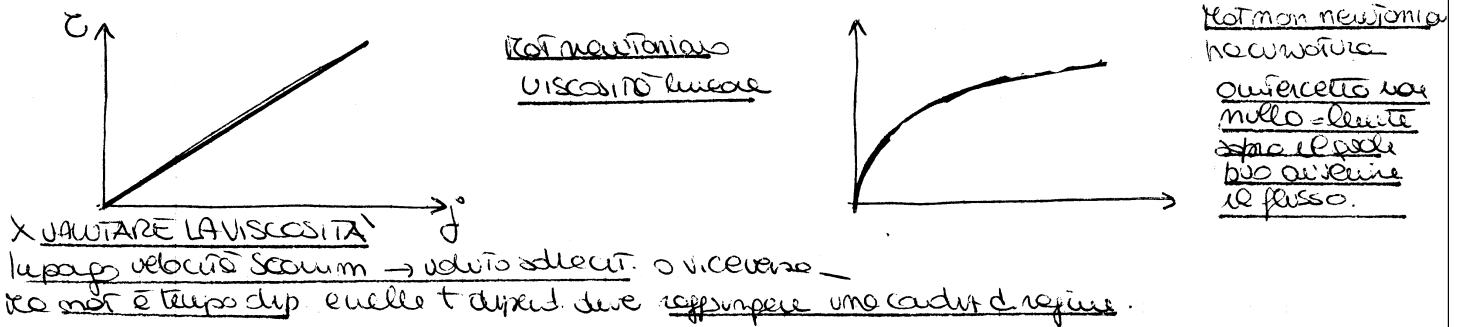 τ
Mat newtoniano
VISCOSITÀ lineare
Mat non newtonia
ha curvatura
o intercetta non
nullo = limite
sopra il quale
può avvenire
il flusso.
γ̇
X VALUTARE LA VISCOSITÀ
Impongo velocità scorrim → valuto sollecit. o viceversa
mat è tempo dip e nelle t dipend. deve raggiungere una condiz d regime.